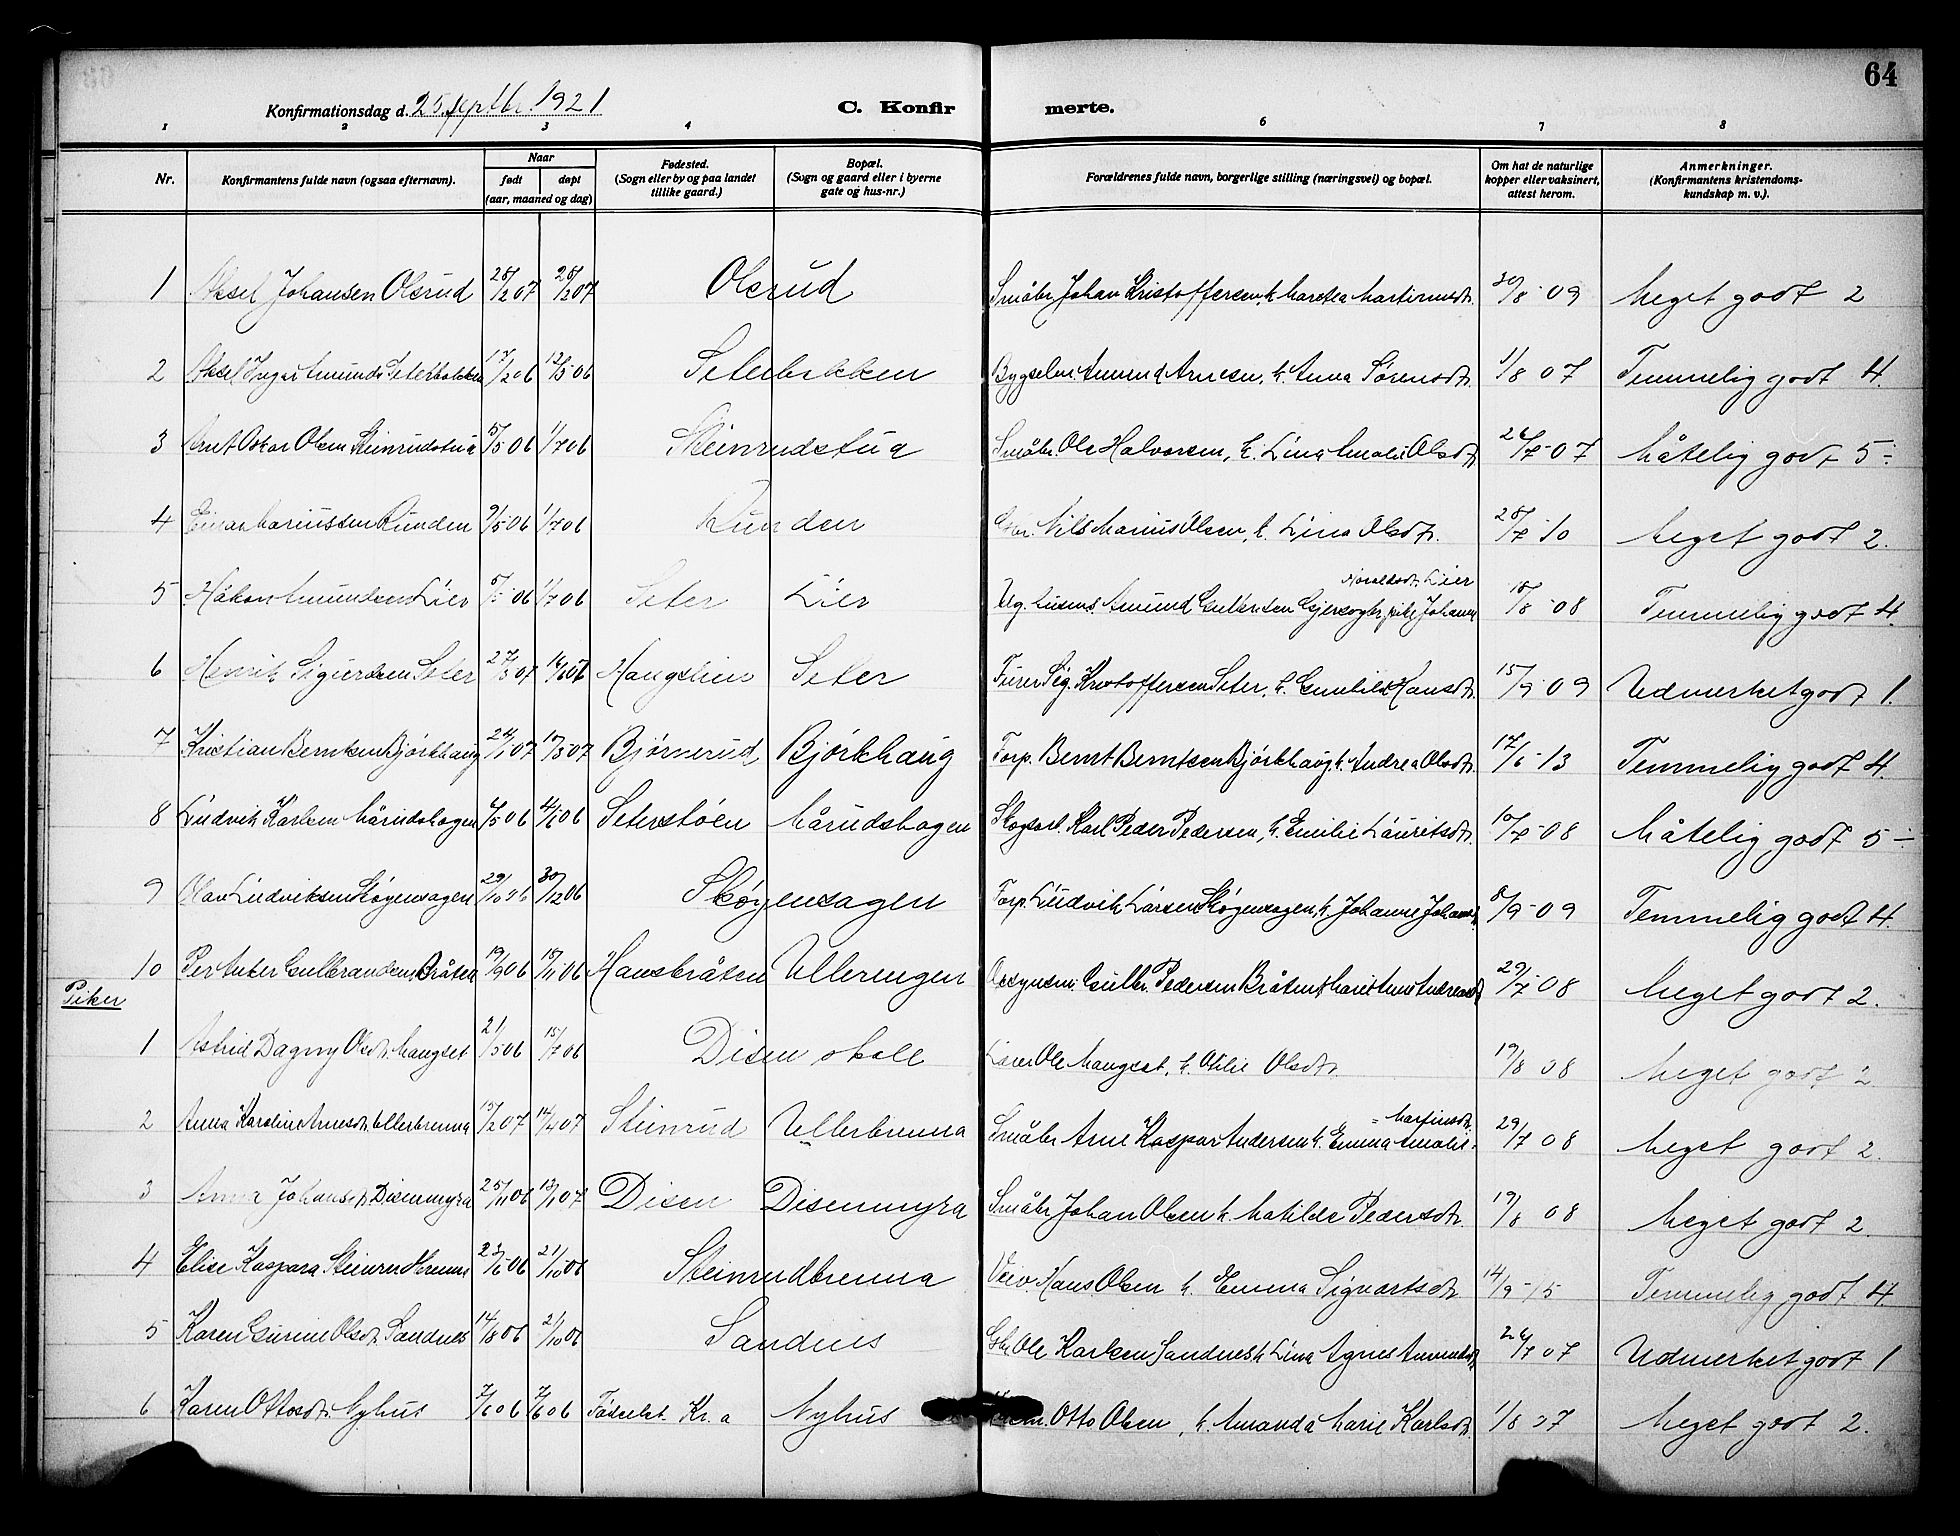 64
Konfirmationsdag d. 25 septbr. 1921 C. Konfirmerte.
1 2 3 4 6 7 8
Nr. Konfirmantens fulde navn (ogsaa efternavn). Naar født døpt (aar, maaned og dag) Fødested. (Sogn eller by og paa landet tillike gaard.) Bopæl. (Sogn og gaard eller i byerne gate og hus-nr.) Forældrenes fulde navn, borgerlige stilling (næringsvei) og bopæl. Om hat de naturlige kopper eller vaksinert, attest herom. Anmerkninger. (Konfirmantens kristendomskundskap m. v.).
1 Aksel Johansen Olsrud 28/2 07 Olsrud Småbr. Johan Kristoffersen, h. Martinusdt. 30/8 09 Meget godt 2
2 Aksel Ingar Amunds. Seterbakken 17/2 06 13/5 06 Seterbakken Bygselm. Amund Arnesen, h. Anna Sørensdt. 1/8 07 Temmelig godt 4.
3 Arnt Oskar Olsen Steinrudstua 5/5 06 1/7 06 Steinrudstua Småbr. Ole Halvorsen, h. Lina Amalie Olsdt. 26/7 07 Måtelig godt 5-
4 Einar Mariussen Runden 9/5 06 1/7 06 Runden Nils Marius Olsen, h. Lina Olsdt. 28/7 10 Meget godt 2.
5 Håkon Amundsen Lier 06 1/7 06 Seter Lier Ug. Amund Gulbrandsen pike Johanne Haraldsdt. Lier 18/8 08 Temmelig godt 4.
6 Henrik Sigurdsen Seter 27/3 07 Haugstein Seter Sig. Kristoffersen Seter, h. Hansdt. 15/9 09 Udmerket godt 1.
7 Kristian Berntsen Bjørkhaug 24/1 07 10/3 07 Bjørnerud Bjørkhaug Torp. Bernt Berntsen Bjørkhaug h. Andrea Olsdt. 17/6 13 Temmelig godt 4.
8 Ludvik Karlsen Mårudshagen 6/5 06 4/6 06 Seterstøen Mårudshagen Skogsarb. Karl Peder Pedersen, h. Emilie Lauritsdt. 10/7 08 Måtelig godt 5-
9 Olav Ludviksen Skøgensagen 29/10 06 30/12 06 Skøgensagen Torp. Ludvik Larsen Skøgensagen, h. Johanne Johansdt. 8/9 09 Temmelig godt 4.
10 Per Anker Gulbrandsen Bråten 19/9 06 18/11 06 Hansbråten Ullerengen Gulbr. Pedersen Bråten h. Marie Andreasdt. 29/7 08 Meget godt 2.
Piker
1 Astrid Dagny Olsdt. Mangset 21/5 06 15/7 06 Disen skole Lærer Ole Mangset, h. Otilie Olsdt. 19/8 08 Meget godt 2
2 Anna Karoline Arnesdt. Ullerbrenna 15/2 07 14/4 07 Steinrud Ullerbrenna Småbr. Arne Kaspar Andersen h. Emma Amalie Martinsdt. 29/7 08 Meget godt 2.
3 Anna Johansdt. Disenmyra 25/11 06 13/1 07 Disen Disenmyra Småbr. Johan Olsen h. Matilde Pedersdt. 19/8 08 Meget godt 2.
4 Elise Kaspara Steinrudbrenna 23/6 06 21/10 06 Steinrudbrenna Veiv. Hans Olsen h. Emma Sigvartsdt. 14/9 15 Temmelig godt 4.
5 Karen Gurine Olsdt. Sandnes 14/8 06 21/10 06 Sandnes Gbr. Ole Karlsen Sandnes h. Lina Agnes Amundsdt. 26/7 07 Udmerket godt 1
6 Karen Ottosdt. Nyhus 7/6 06 7/6 06 Fødselst. Kr.a Nyhus Otto Olsen, h. Amanda Marie Karlsdt. 1/8 07 Meget godt 2.